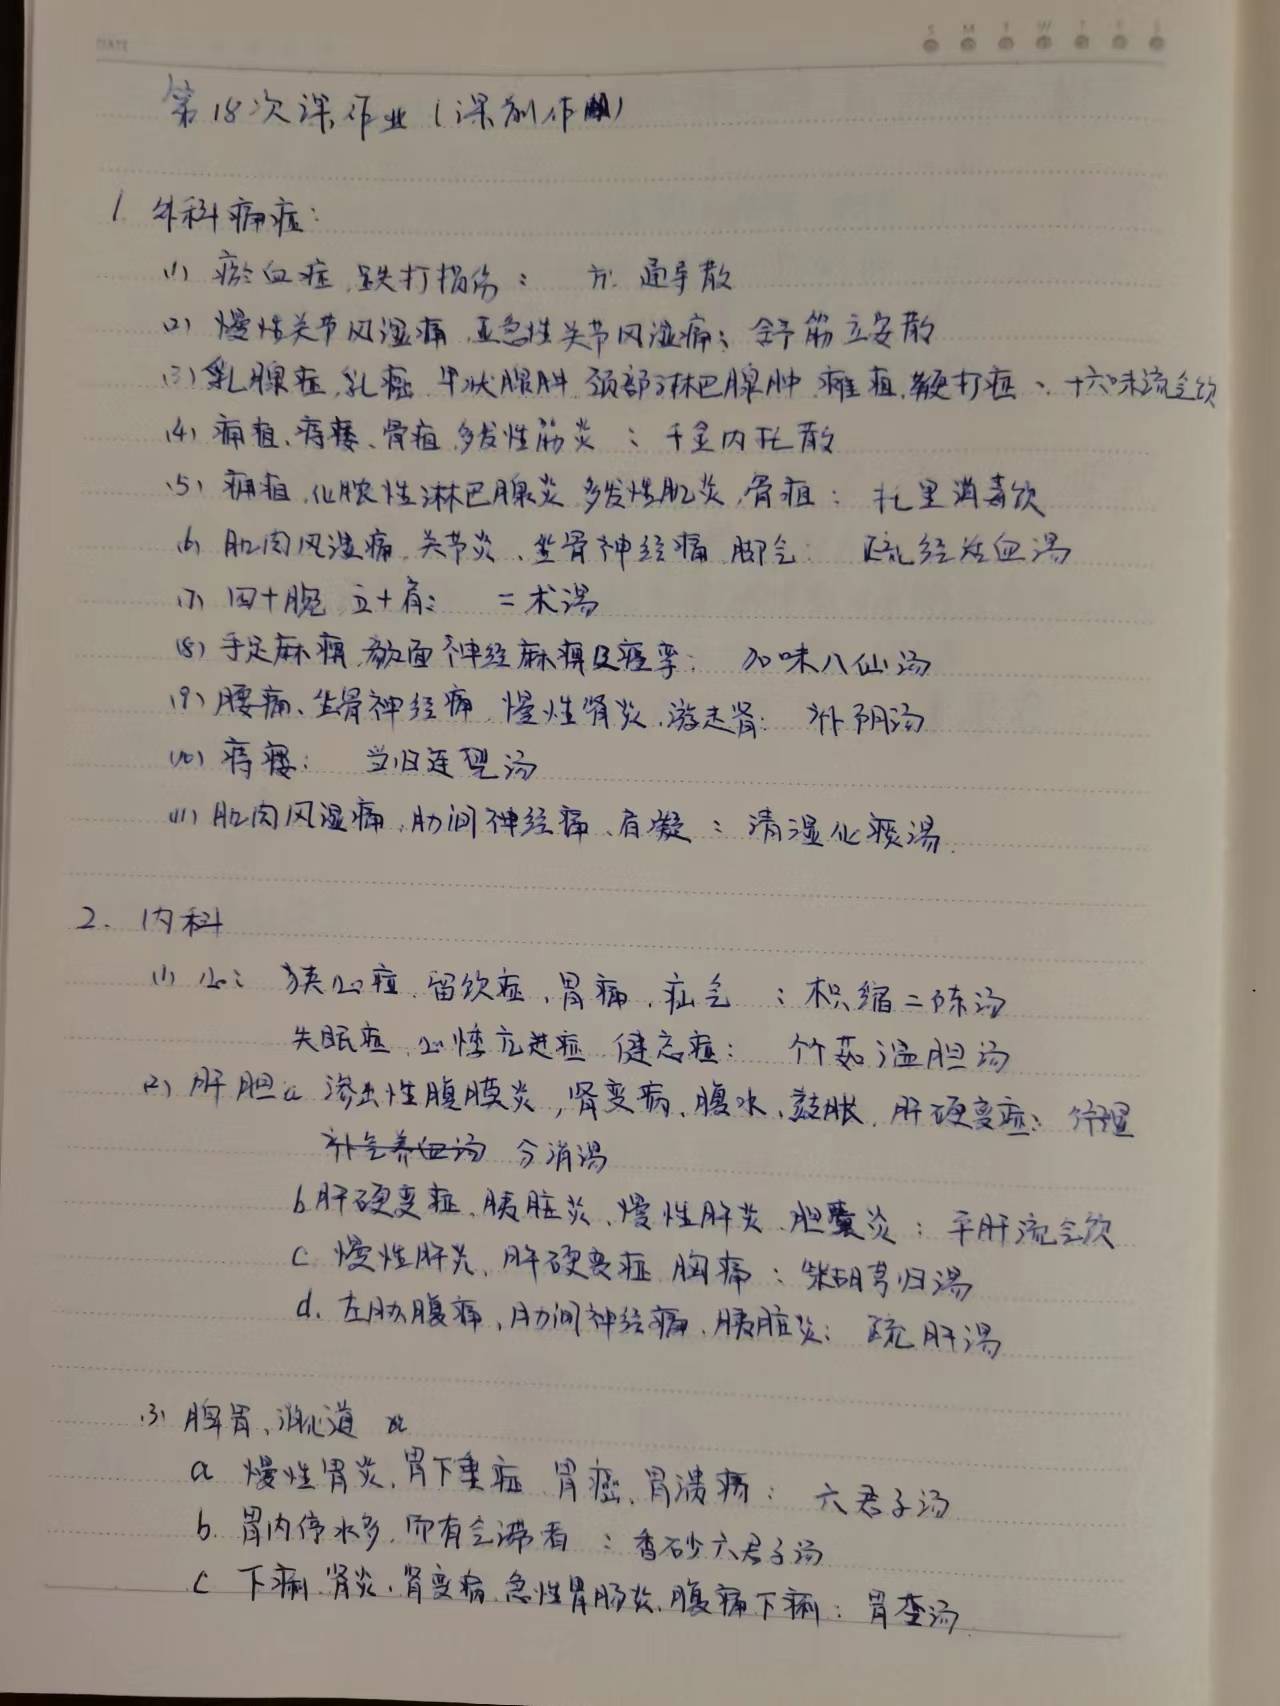 第18次课作业(课前作业)
1 外科痛症:
(1) 瘀血症、跌打损伤: 方: 通导散
(2) 慢性关节风湿痛、亚急性关节风湿痛: 舒筋立安散
(3) 乳腺症、乳癌、甲状腺肿、颈部淋巴腺肿、瘫疽、鞭打症: 十六味流气饮
(4) 痈疽、痔瘘、骨疽、多发性筋炎: 千金内托散
(5) 痈疽、化脓性淋巴腺炎、多发性肌炎、骨疽: 托里消毒饮
(6) 肌肉风湿痛、关节炎、坐骨神经痛、脚气: 疏经活血汤
(7) 四十腕 五十肩: 二术汤
(8) 手足麻痹、颜面神经麻痹及痉挛: 加味八仙汤
(9) 腰痛、坐骨神经痛、慢性肾炎、游走肾: 补阴汤
(10) 痔瘘: 当归连翘汤
(11) 肌肉风湿痛、肋间神经痛、肩凝: 清湿化痰汤.
2. 内科
(1) 心: 狭心症、留饮症、胃痛、疝气: 枳缩二陈汤
失眠症、心悸亢进症 健忘症: 竹茹温胆汤
(2) 肝胆: a 渗出性腹膜炎、肾变病、腹水、鼓胀、肝硬变症:
补气养血汤 分消汤
b 肝硬变症、胰脏炎、慢性肝炎、胆囊炎: 平肝流气饮
c 慢性肝炎、肝硬变症 胸痛: 柴胡芎归汤
d. 左肋腹痛、肋间神经痛、胰脏炎: 疏肝汤
(3) 脾胃、消化道
a 慢性胃炎、胃下垂症 胃癌、胃溃疡: 六君子汤
b. 胃内停水多、而有气滞者: 香砂六君子汤
c 下痢、肾炎、肾变病、急性胃肠炎、腹痛下痢: 胃苓汤